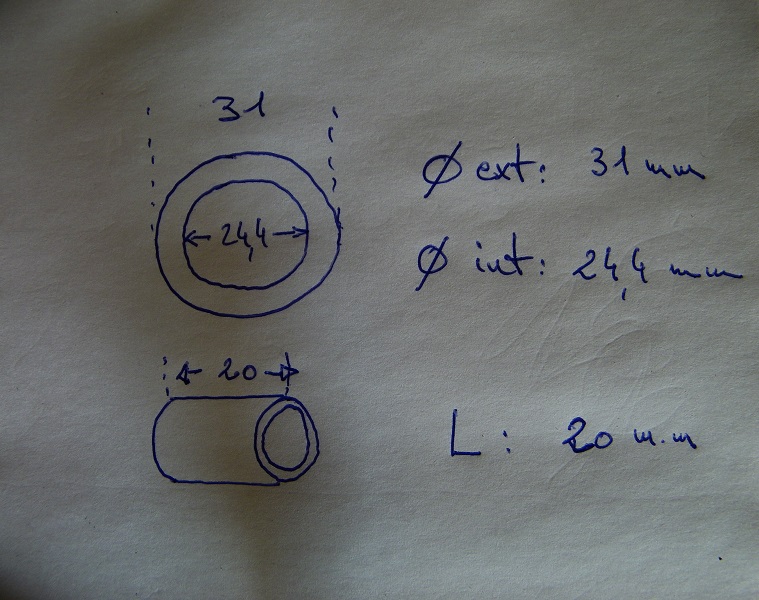 31
Ø ext: 31 mm
24,4
Ø int: 24,4 mm
20
L: 20 m.m